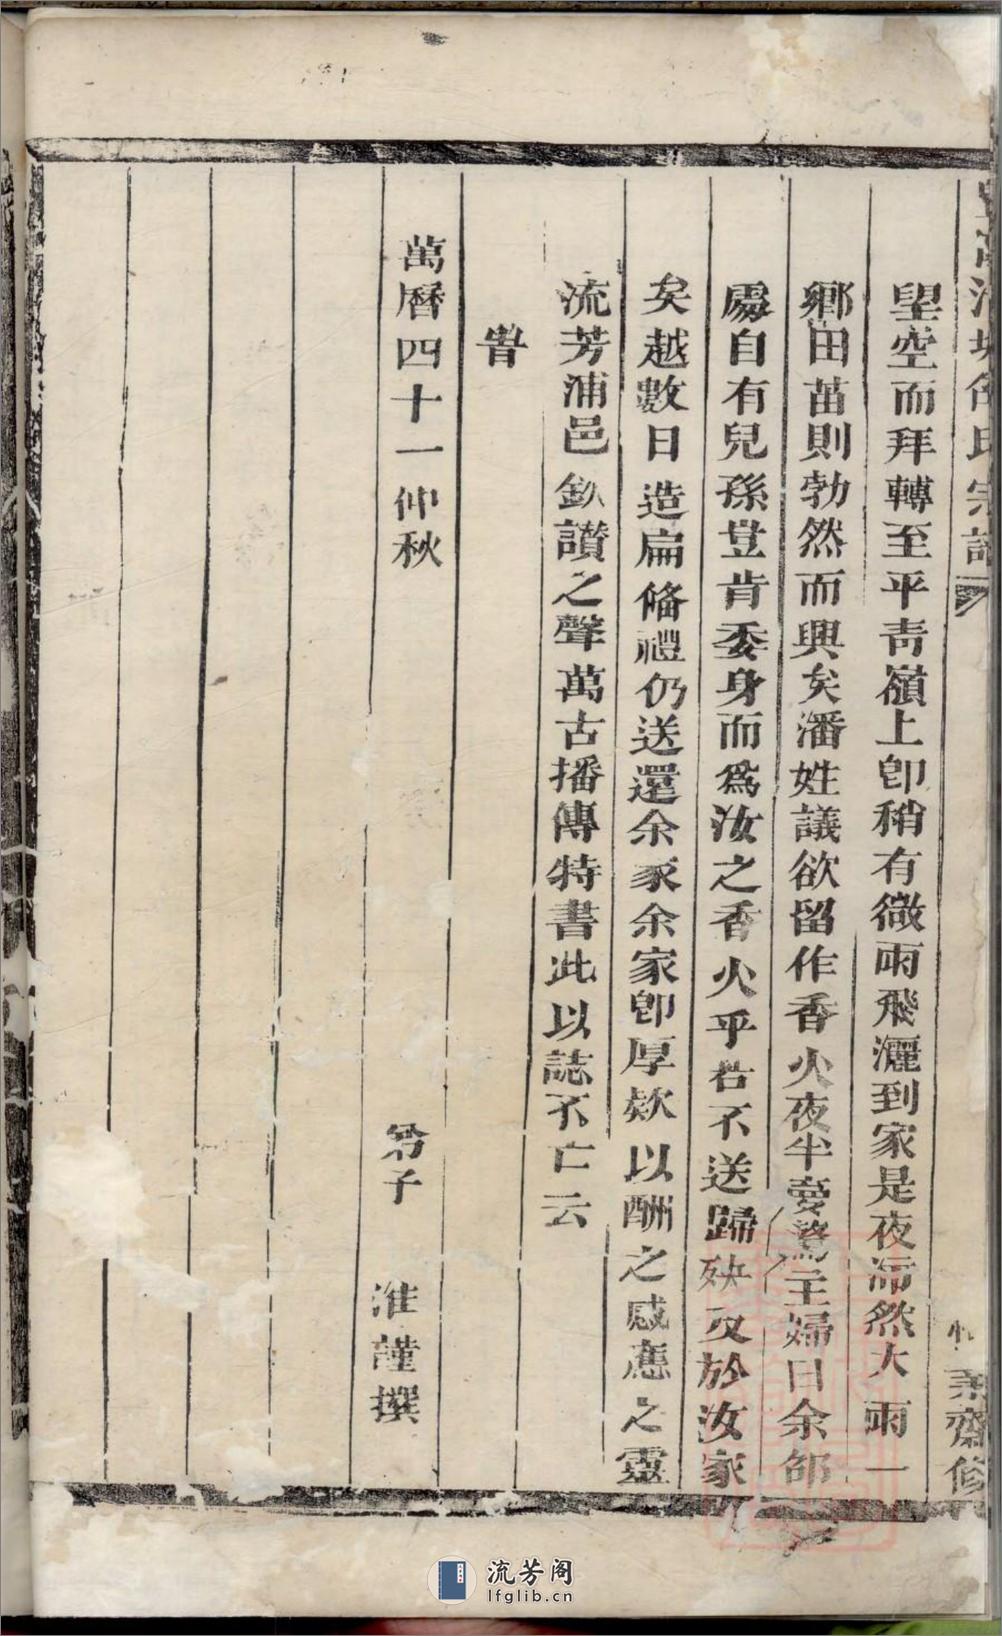 清 邵氏宗譜
望空而拜轉至平靑嶺上卽稍有微雨飛灑到家是夜沛然大雨一
鄉田苗則勃然而興矣潘姓議欲留作香火夜半夢驚主婦曰余邵
處自有兒孫豈肯委身而爲汝之香火乎若不送歸殃及於汝家
矣越數日造扁俻禮仍送還余家余家卽厚欵以酬之感應之靈
流芳浦邑欽讃之聲萬古播傳特書此以誌不亡云
旹
萬曆四十一仲秋
淮謹撰
齋修
流芳阁
lfglib.cn